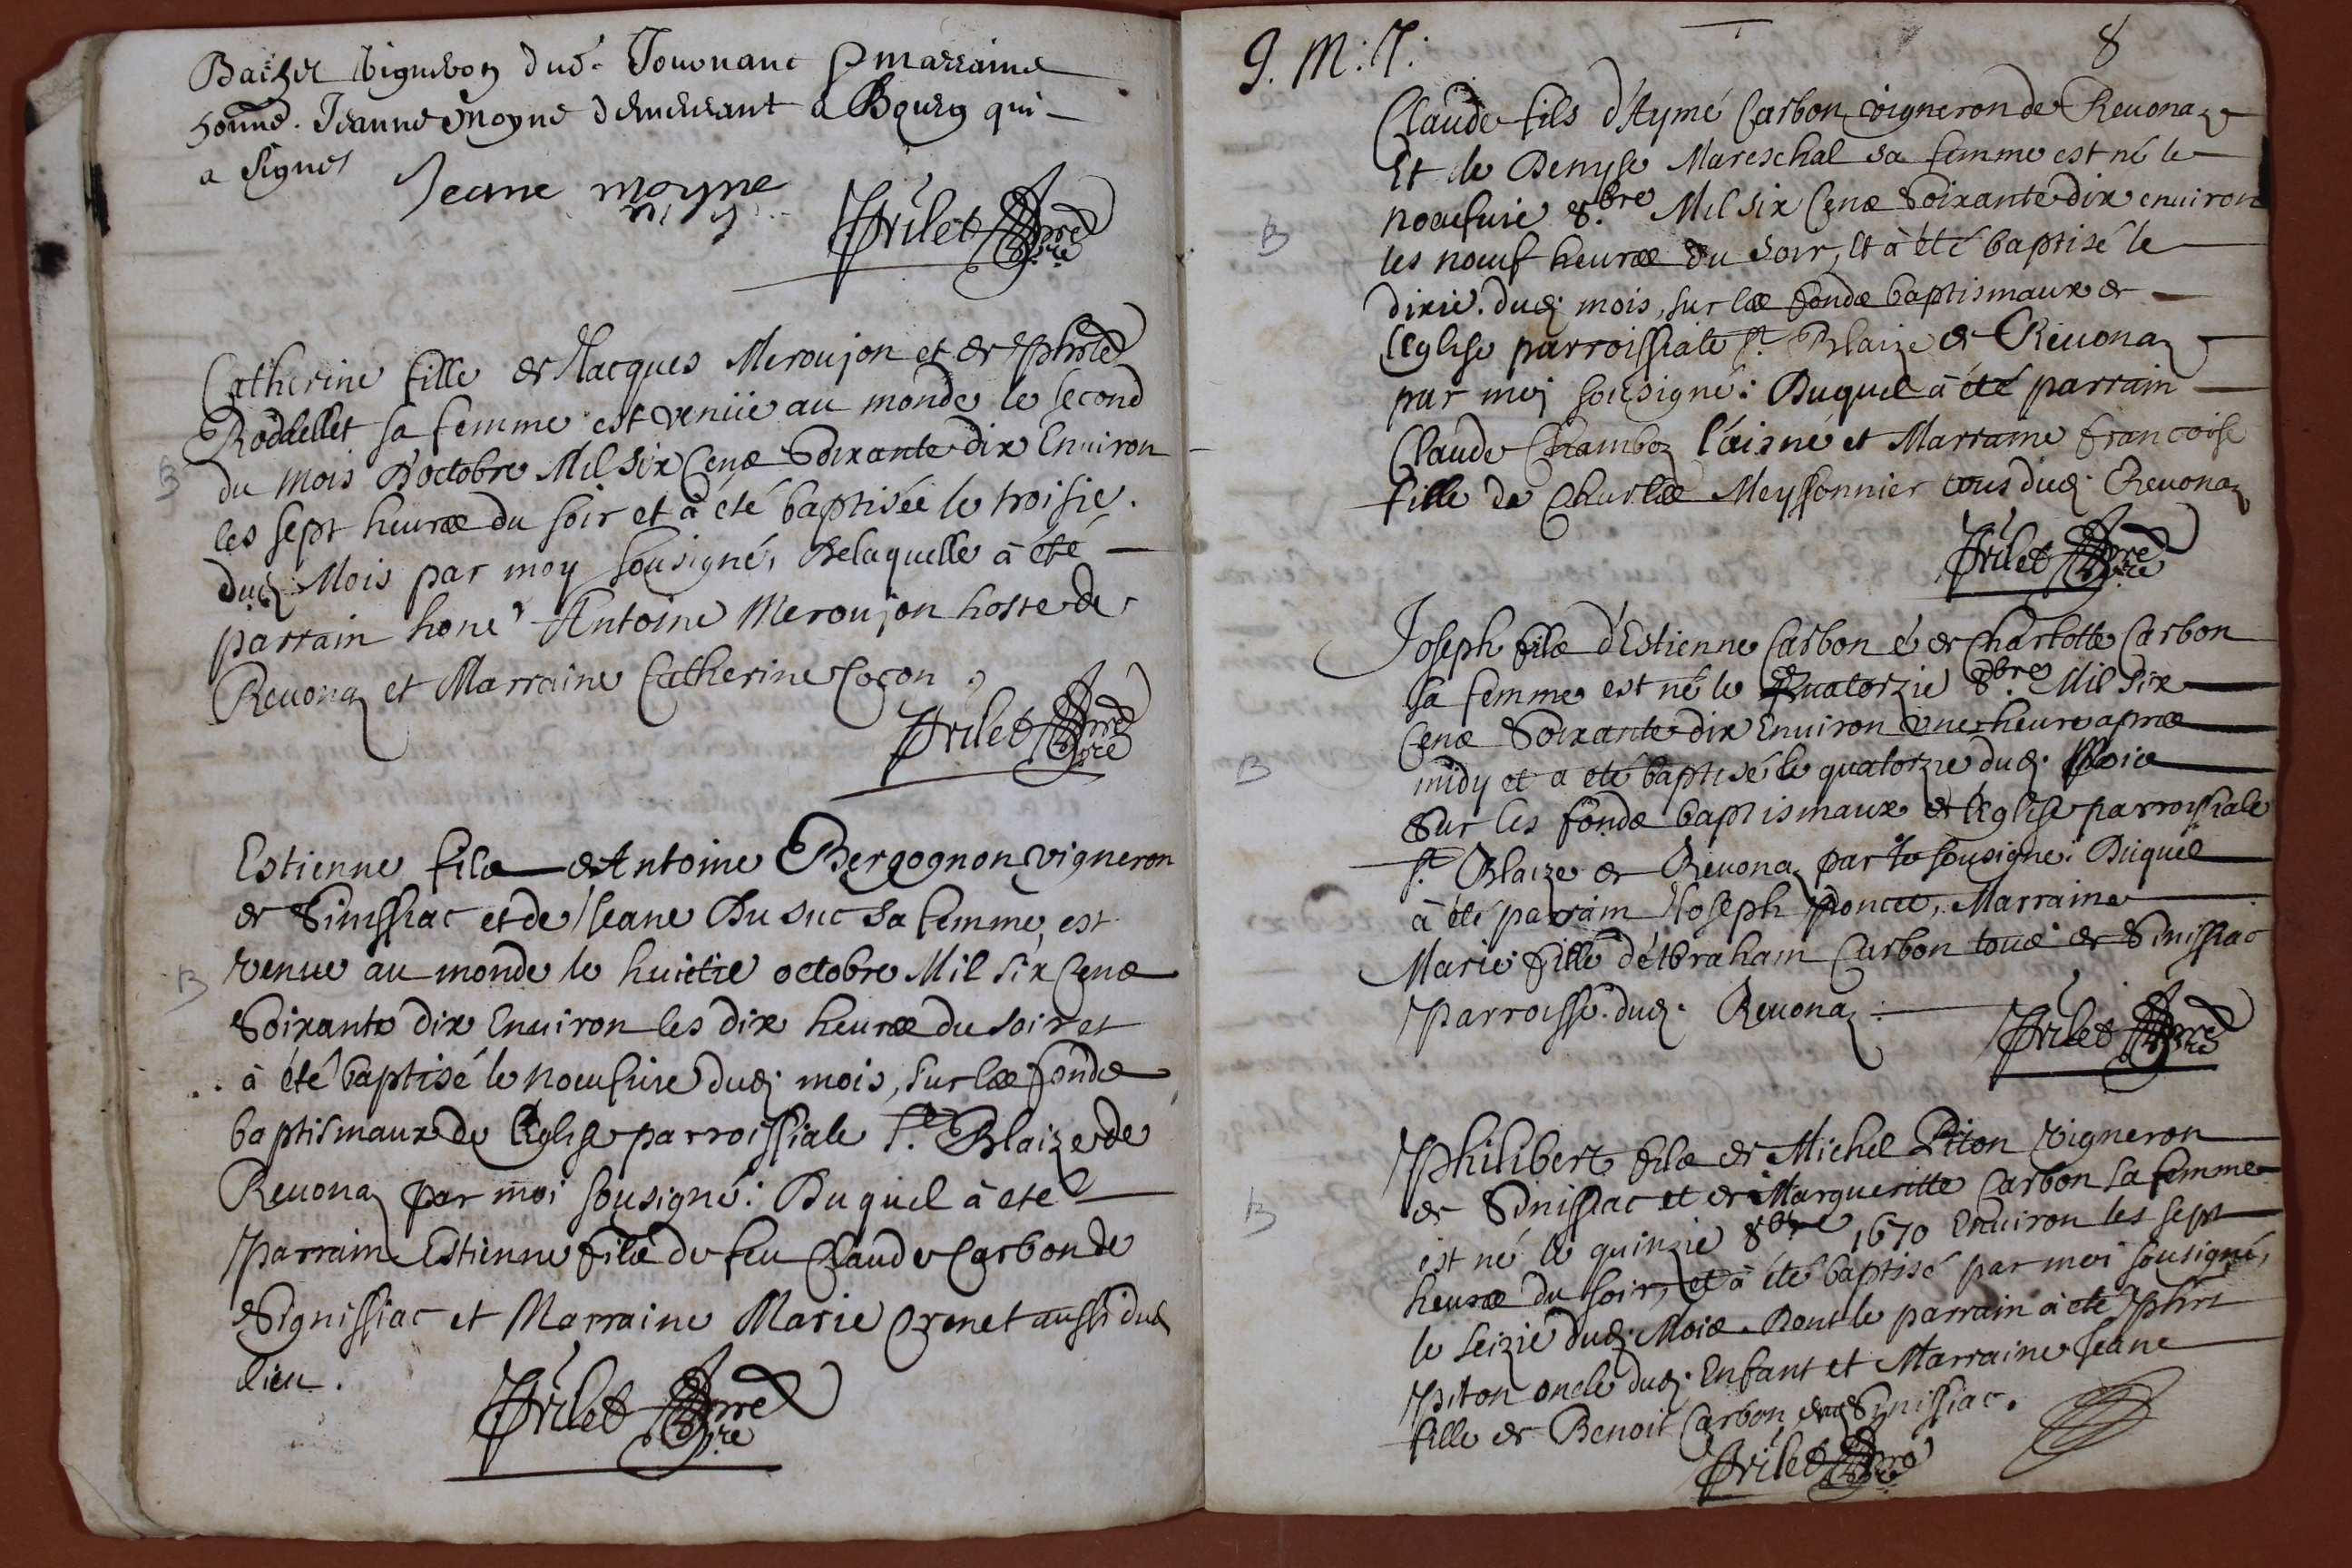 vigneron dud. Jouonant & marraine
honne. Jeanne Moyne demeurant a Bourg qui
a signé
Jeane moyne
Frilet pre
Catherine fille de Jacques Meroujon et de
Rodellet sa femme est veniie au monde le second
B
du mois d'octobre Mil six Cens Soixante dix Enuiron
les sept heures du soir et à eté baptisée le troisie.
dud. Mois par moy sousigné, Delaquelle à été
parrain hone Antoine Meroujon hoste de
Reuonaz et Marraine Catherine Coçon
Frilet pre
Estienne fils de Antoine Bergognon vigneron
de Sinissiac et de Jeane Du suc sa femme, est
B
venue au monde le huictie octobre Mil six Cens
Soixante dix Enuiron les dix heures du soir et
à été baptisé le noeufuie dud. mois, sur les fonds
baptismaux de l'Eglise parroissiale St. Blaize de
Reuonaz par moi sousigné: Duquel à eté
Parrain Estienne fils de feu Claude Carbon de
Signissiac et Marraine Marie Grenet aussi dud
lieu.
Frilet pre
J. M. J.
8
Claude fils d'Aymé Carbon vigneron de Reuonaz
Et de Denyse Mareschal sa femme est né le
noeufuie 8.bre Mil six Cens Soixante dix enuiron
B
les noeuf heures du soir, et à été baptisé le
dixie. dud. mois, sur les fonds baptismaux de
l'Eglise parroissiale St. Blaize de Reuonaz
par moi sousigné: Duquel à été parrain
Claude Chamboz l'aisné et Marraine francoise
fille de Charles Meyssonnier tous dud. Reuonaz
Frilet pre
Joseph fils d'Estienne Carbon & de Charlotte Carbon
sa femme est né le Quatorzie 8.bre Mil six
Cens Soixante dix Enuiron une heure apres
B
midy et a eté baptisé le quatorzie dud. Mois
Sur les fonds baptismaux de l'Eglise parroissiale
St. Blaize de Reuonaz par le sousigné: Duquel
à été parrain Joseph Poncet, Marraine
Marie fille d'Abraham Carbon tous de Sinissiac
Parroisse. dud. Reuonaz:
Frilet pre
Philibert fils de Michel Piton vigneron
de Sinissiac et de Margueritte Carbon sa femme
B
est né le quinzie 8bre 1670 Enuiron les sept
heures du soir, et à été baptisé par moi sousigné,
le seizie dud. Mois. Dont le parrain à eté Phirt
Piton oncle dud. Enfant et Marraine Jeane
fille de Benoit Carbon de Sinissiac.
Frilet pre